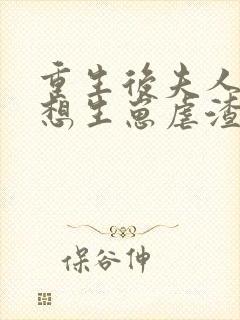 重生後夫人
想生崽虐渣
保谷伸